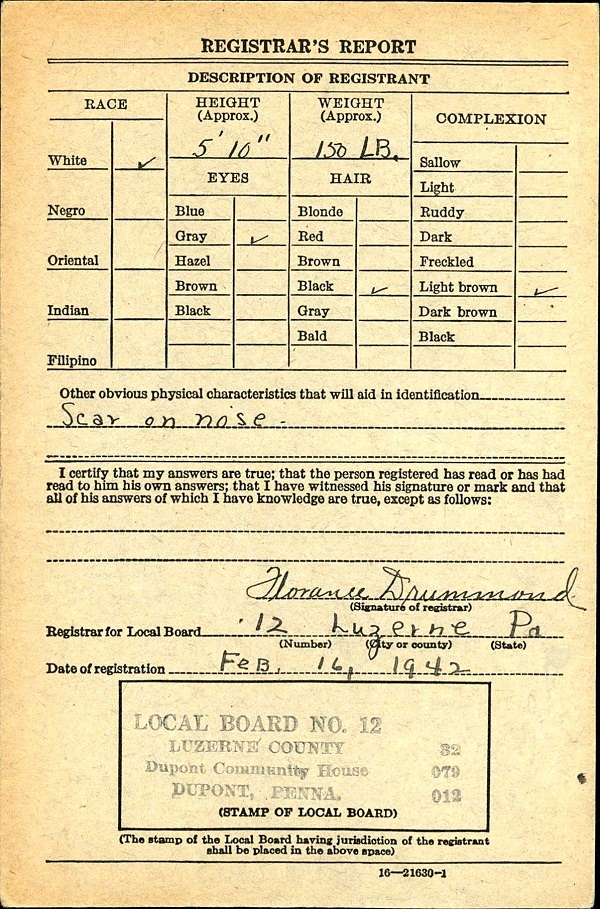 REGISTRAR'S REPORT
DESCRIPTION OF REGISTRANT
RACE
HEIGHT (Approx.)
WEIGHT (Approx.)
COMPLEXION
5' 10"
150 LB.
White ✓
EYES
HAIR
Sallow
Light
Negro
Blue
Blonde
Ruddy
Gray ✓
Red
Dark
Oriental
Hazel
Brown
Freckled
Brown
Black ✓
Light brown ✓
Indian
Black
Gray
Dark brown
Bald
Black
Filipino
Other obvious physical characteristics that will aid in identification
Scar on nose -
I certify that my answers are true; that the person registered has read or has had
read to him his own answers; that I have witnessed his signature or mark and that
all of his answers of which I have knowledge are true, except as follows:
Florance Drummond
(Signature of registrar)
Registrar for Local Board 12 Luzerne Pa
(Number) (City or county) (State)
Date of registration Feb. 16, 1942
LOCAL BOARD NO. 12
LUZERNE COUNTY 32
Dupont Community House 079
DUPONT, PENNA. 012
(STAMP OF LOCAL BOARD)
(The stamp of the Local Board having jurisdiction of the registrant
shall be placed in the above space)
16—21630-1